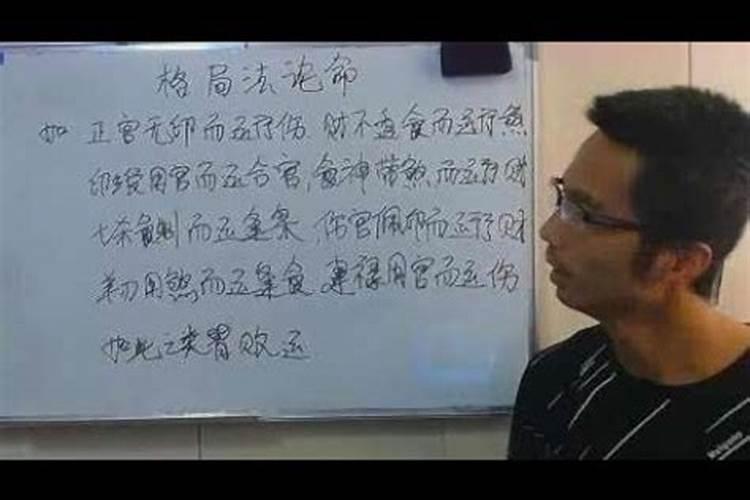 格局法论命
如 正官无印而运行伤 财不透食而运行煞
印绶用官而运合官,食神带煞而运行财
七杀食制而运逢枭,伤官佩印而运行财
羊刃用煞而运逢食,建禄用官而运伤
如此之类皆败运